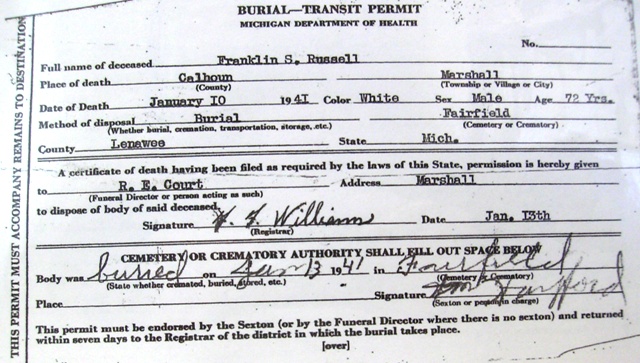 BURIAL—TRANSIT PERMIT
MICHIGAN DEPARTMENT OF HEALTH
No.
Full name of deceased Franklin S. Russell
Place of death Calhoun Marshall
(County) (Township or Village or City)
Date of Death January 10 1941 Color White Sex Male Age 72 Yrs.
Method of disposal Burial Fairfield
(Whether burial, cremation, transportation, storage, etc.) (Cemetery or Crematory)
County Lenawee State Mich.
A certificate of death having been filed as required by the laws of this State, permission is hereby given
to R. E. Court Address Marshall
(Funeral Director or person acting as such)
to dispose of body of said deceased.
Signature Williams Date Jan. 13th
(Registrar)
CEMETERY OR CREMATORY AUTHORITY SHALL FILL OUT SPACE BELOW
Body was buried on Jan 13 1941 in Fairfield
(State whether cremated, buried, stored, etc.) (Cemetery or Crematory)
Place Signature
(Sexton or person in charge)
This permit must be endorsed by the Sexton (or by the Funeral Director where there is no sexton) and returned
within seven days to the Registrar of the district in which the burial takes place.
[over]
THIS PERMIT MUST ACCOMPANY REMAINS TO DESTINATION